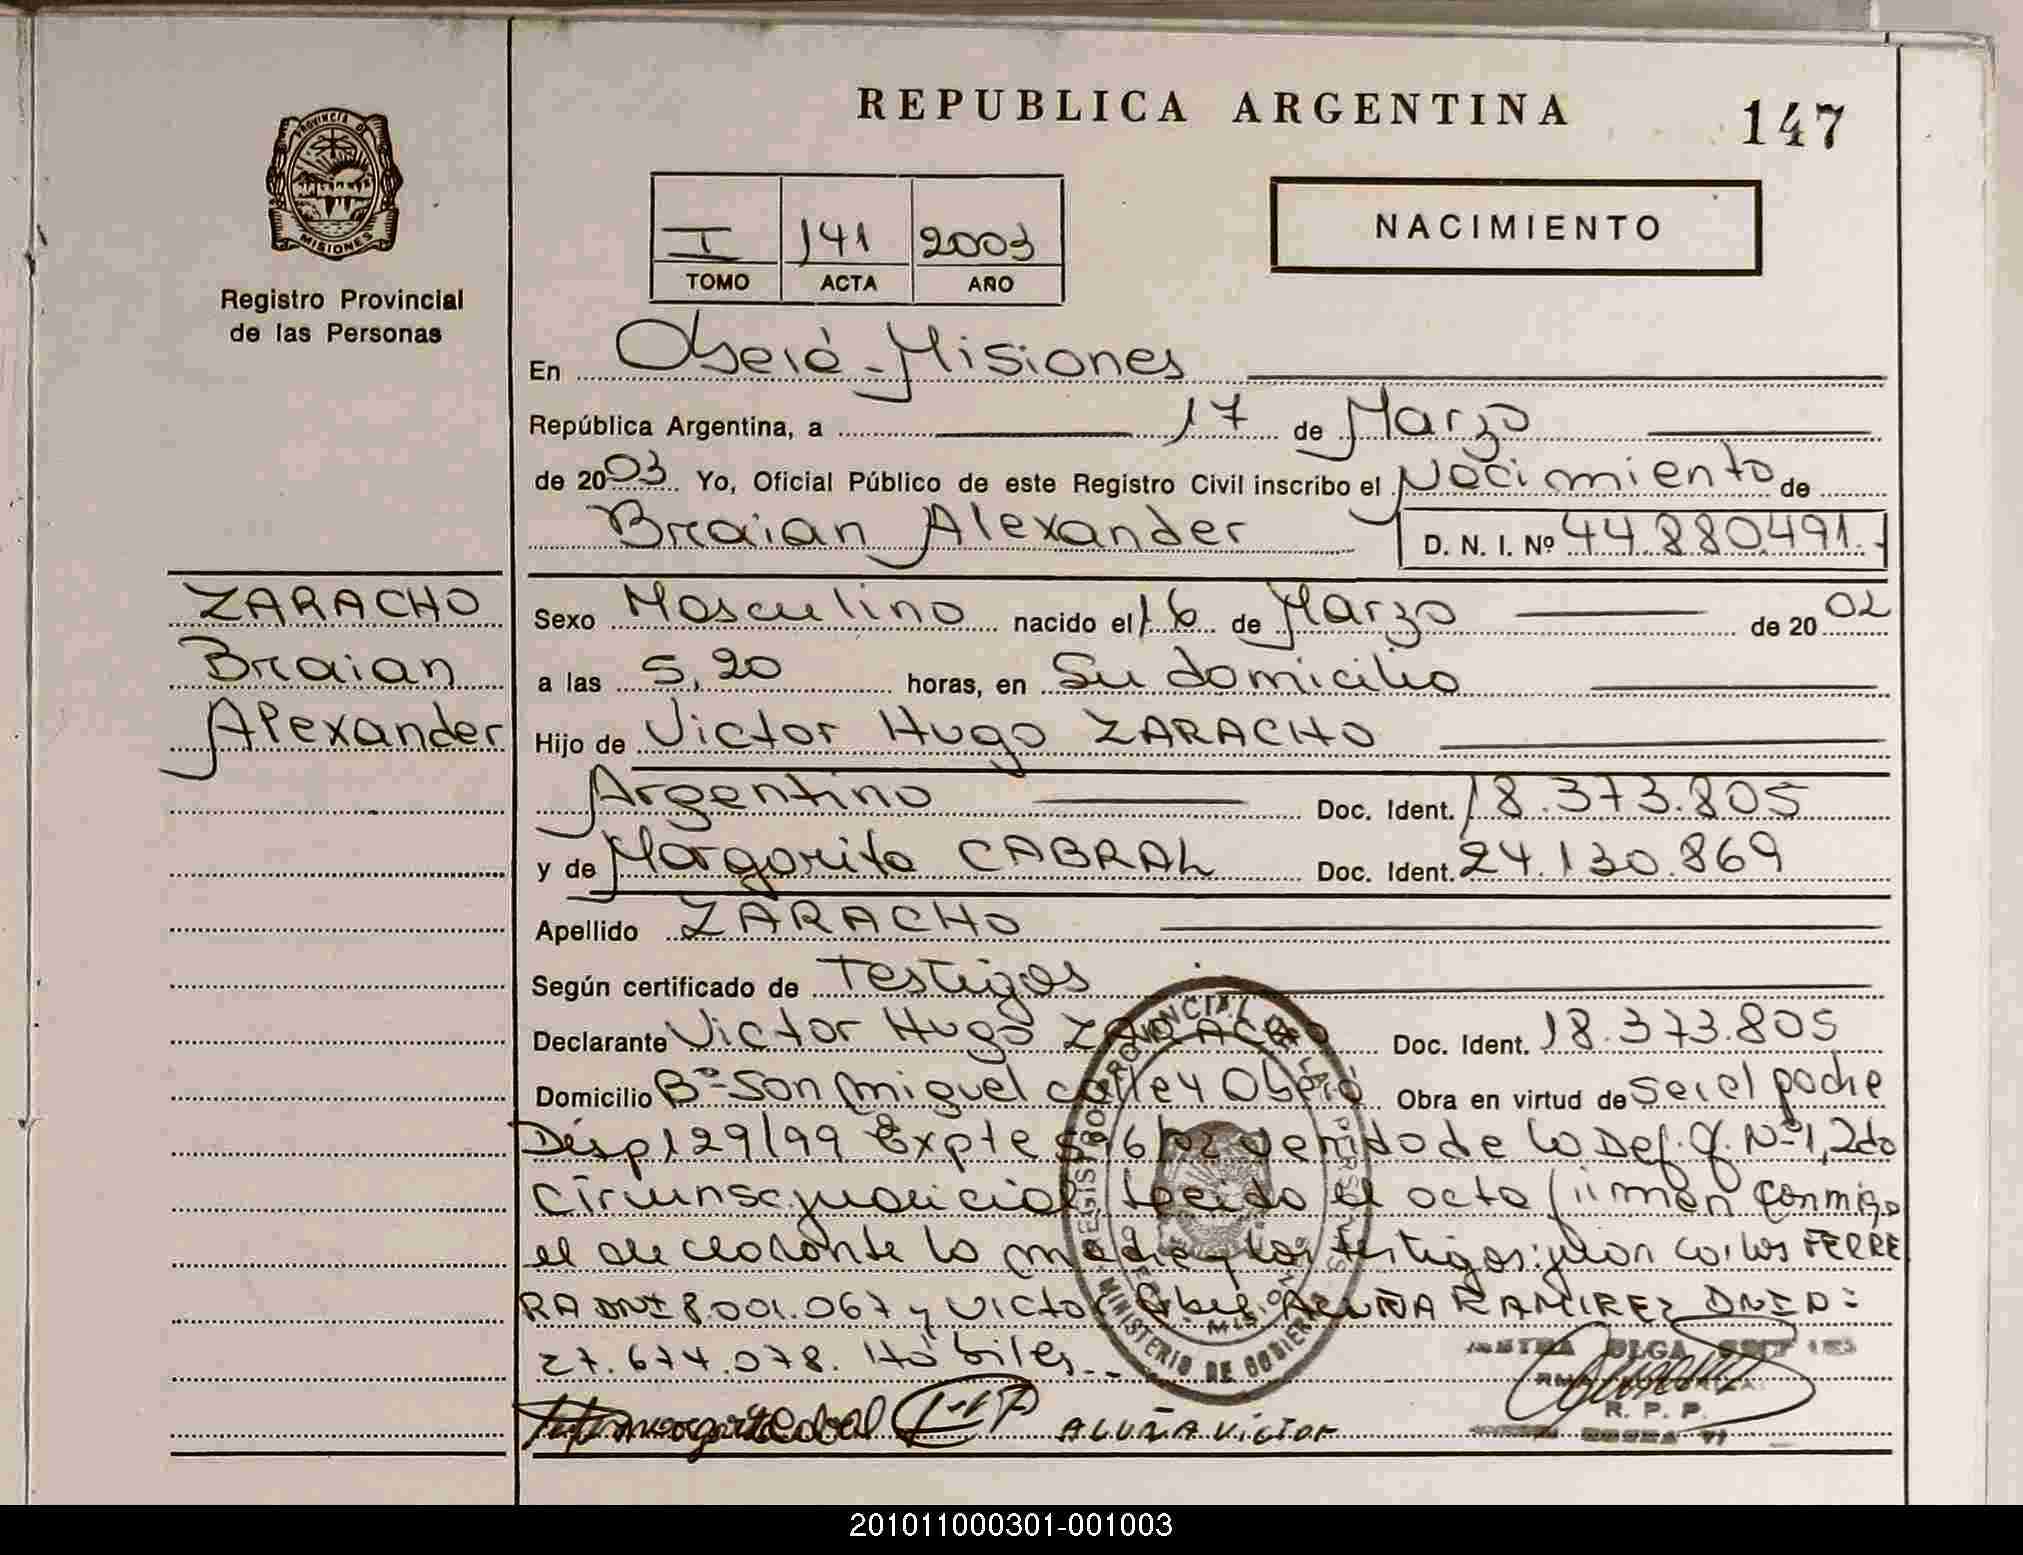 REPUBLICA ARGENTINA
147
PROVINCIA D
MISIONES
Registro Provincial
de las Personas
I 141 2003
TOMO ACTA AÑO
NACIMIENTO
En Oberá - Misiones
República Argentina, a 17 de Marzo
de 2003 Yo, Oficial Público de este Registro Civil inscribo el Nacimiento de
Braian Alexander D. N. I. Nº 44.880.491.-
ZARACHO
Braian
Alexander
Sexo Masculino nacido el 16 de Marzo de 2002
a las 5,20 horas, en Su domicilio
Hijo de Victor Hugo ZARACHO
Argentino Doc. Ident. 18.373.805
y de Margarita CABRAL Doc. Ident. 24.130.869
Apellido ZARACHO
Según certificado de Testigos
Declarante Victor Hugo ZARACHO Doc. Ident. 18.373.805
Domicilio Bº San Miguel calle 4 Oberá Obra en virtud de Ser el padre
Disp 129/99 Expte 596/02 venido de la Def. Of. Nº 1, 2da
Circunsc. judicial leido el acta firman conmigo
el declarante la madre y los testigos: Juan Carlos FERRE
RA DNI 8.001.067 y Victor ACUÑA RAMIREZ DNI Nº
27.674.078. Hábiles.--
REGISTRO PROVINCIAL DE LAS PERSONAS
MINISTERIO DE GOBIERNO
MISIONES
margarita Cabral
ACUÑA VICTOR
OLGA
R. P. P.
201011000301-001003